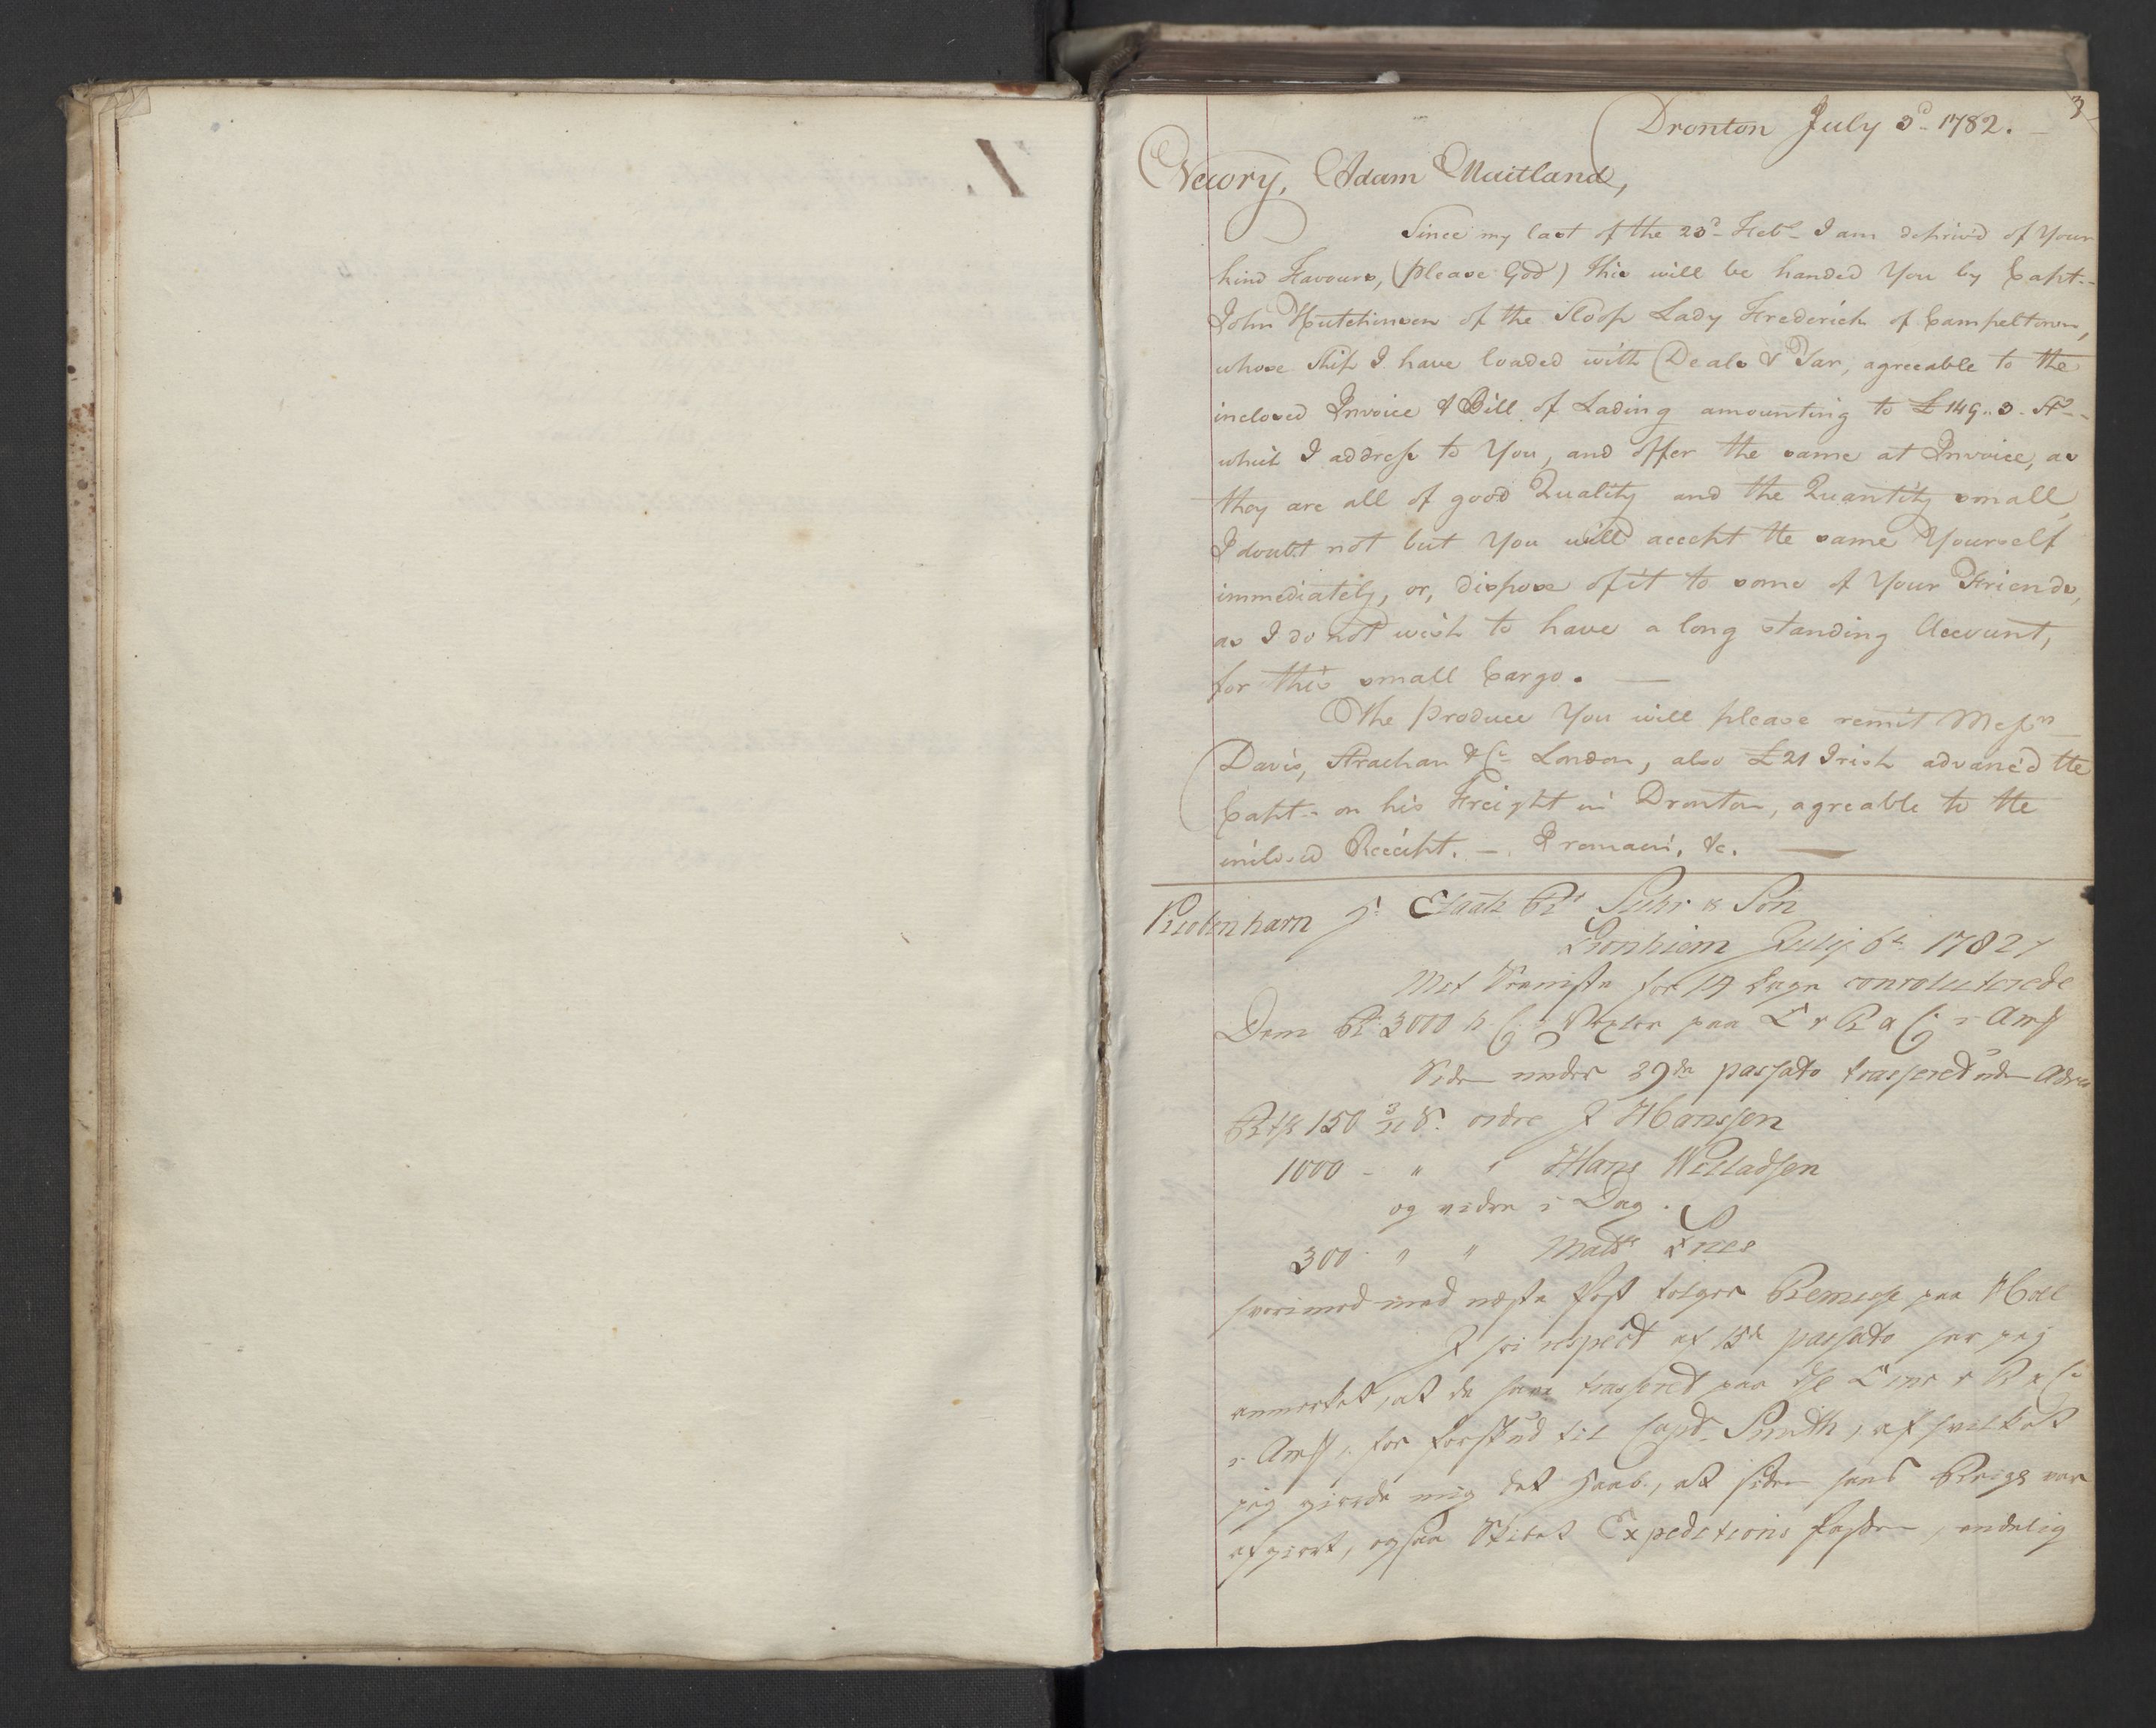 3
Dronton July 3d 1782.
Newry, Adam Maitland,
Since my last of the 23d Feb. I am depriv'd of Your
kind Favours, (please God) this will be handed You by Capt.
John Hutchinson of the Sloop Lady Frederick of Campeltown,
whose Ship I have loaded with Deals & Tar, agreeable to the
inclosed Invoice & Bill of Lading amounting to £149..3. St
which I address to You, and offer the same at Invoice, as
they are all of good Quality and the Quantity small,
I doubt not but You will accept the same Yourself
immediately, or, dispose of it to some of Your Friends,
as I do not wish to have a long standing Account,
for this small Cargo. —
The produce You will please remit Messrs
Davis, Strachan & Co London, also £21 Irish advanc'd the
Capt. on his Freight in Dronton, agreable to the
inclosed Receipt. — I remain, &c. —
Kiøbenhavn Hr Etaats Rd Suhr & Søn
Tronhiem Julij 6te 1782
Met Præmisse for 14 Dage convoluterede
Dem R 3000 Vexler paa & R & C i Amst
Siden under 29de passato trasseret uden Advis
150 ordre J Hanssen
1000 - " " Hans Willadsen
og videre i Dag.
300 " " Matts
hvorimod med næste Post følger Remisse paa
I respect af 15de passato har jeg
anmerket, at De have trasseret paa & R & C
i Amst, for Forskud til Capt. Smith, af hvilket
jeg giorde mig det Haab, at siden hans Reise var
afgiort, ogsaa Skibet Expeditions, endelig